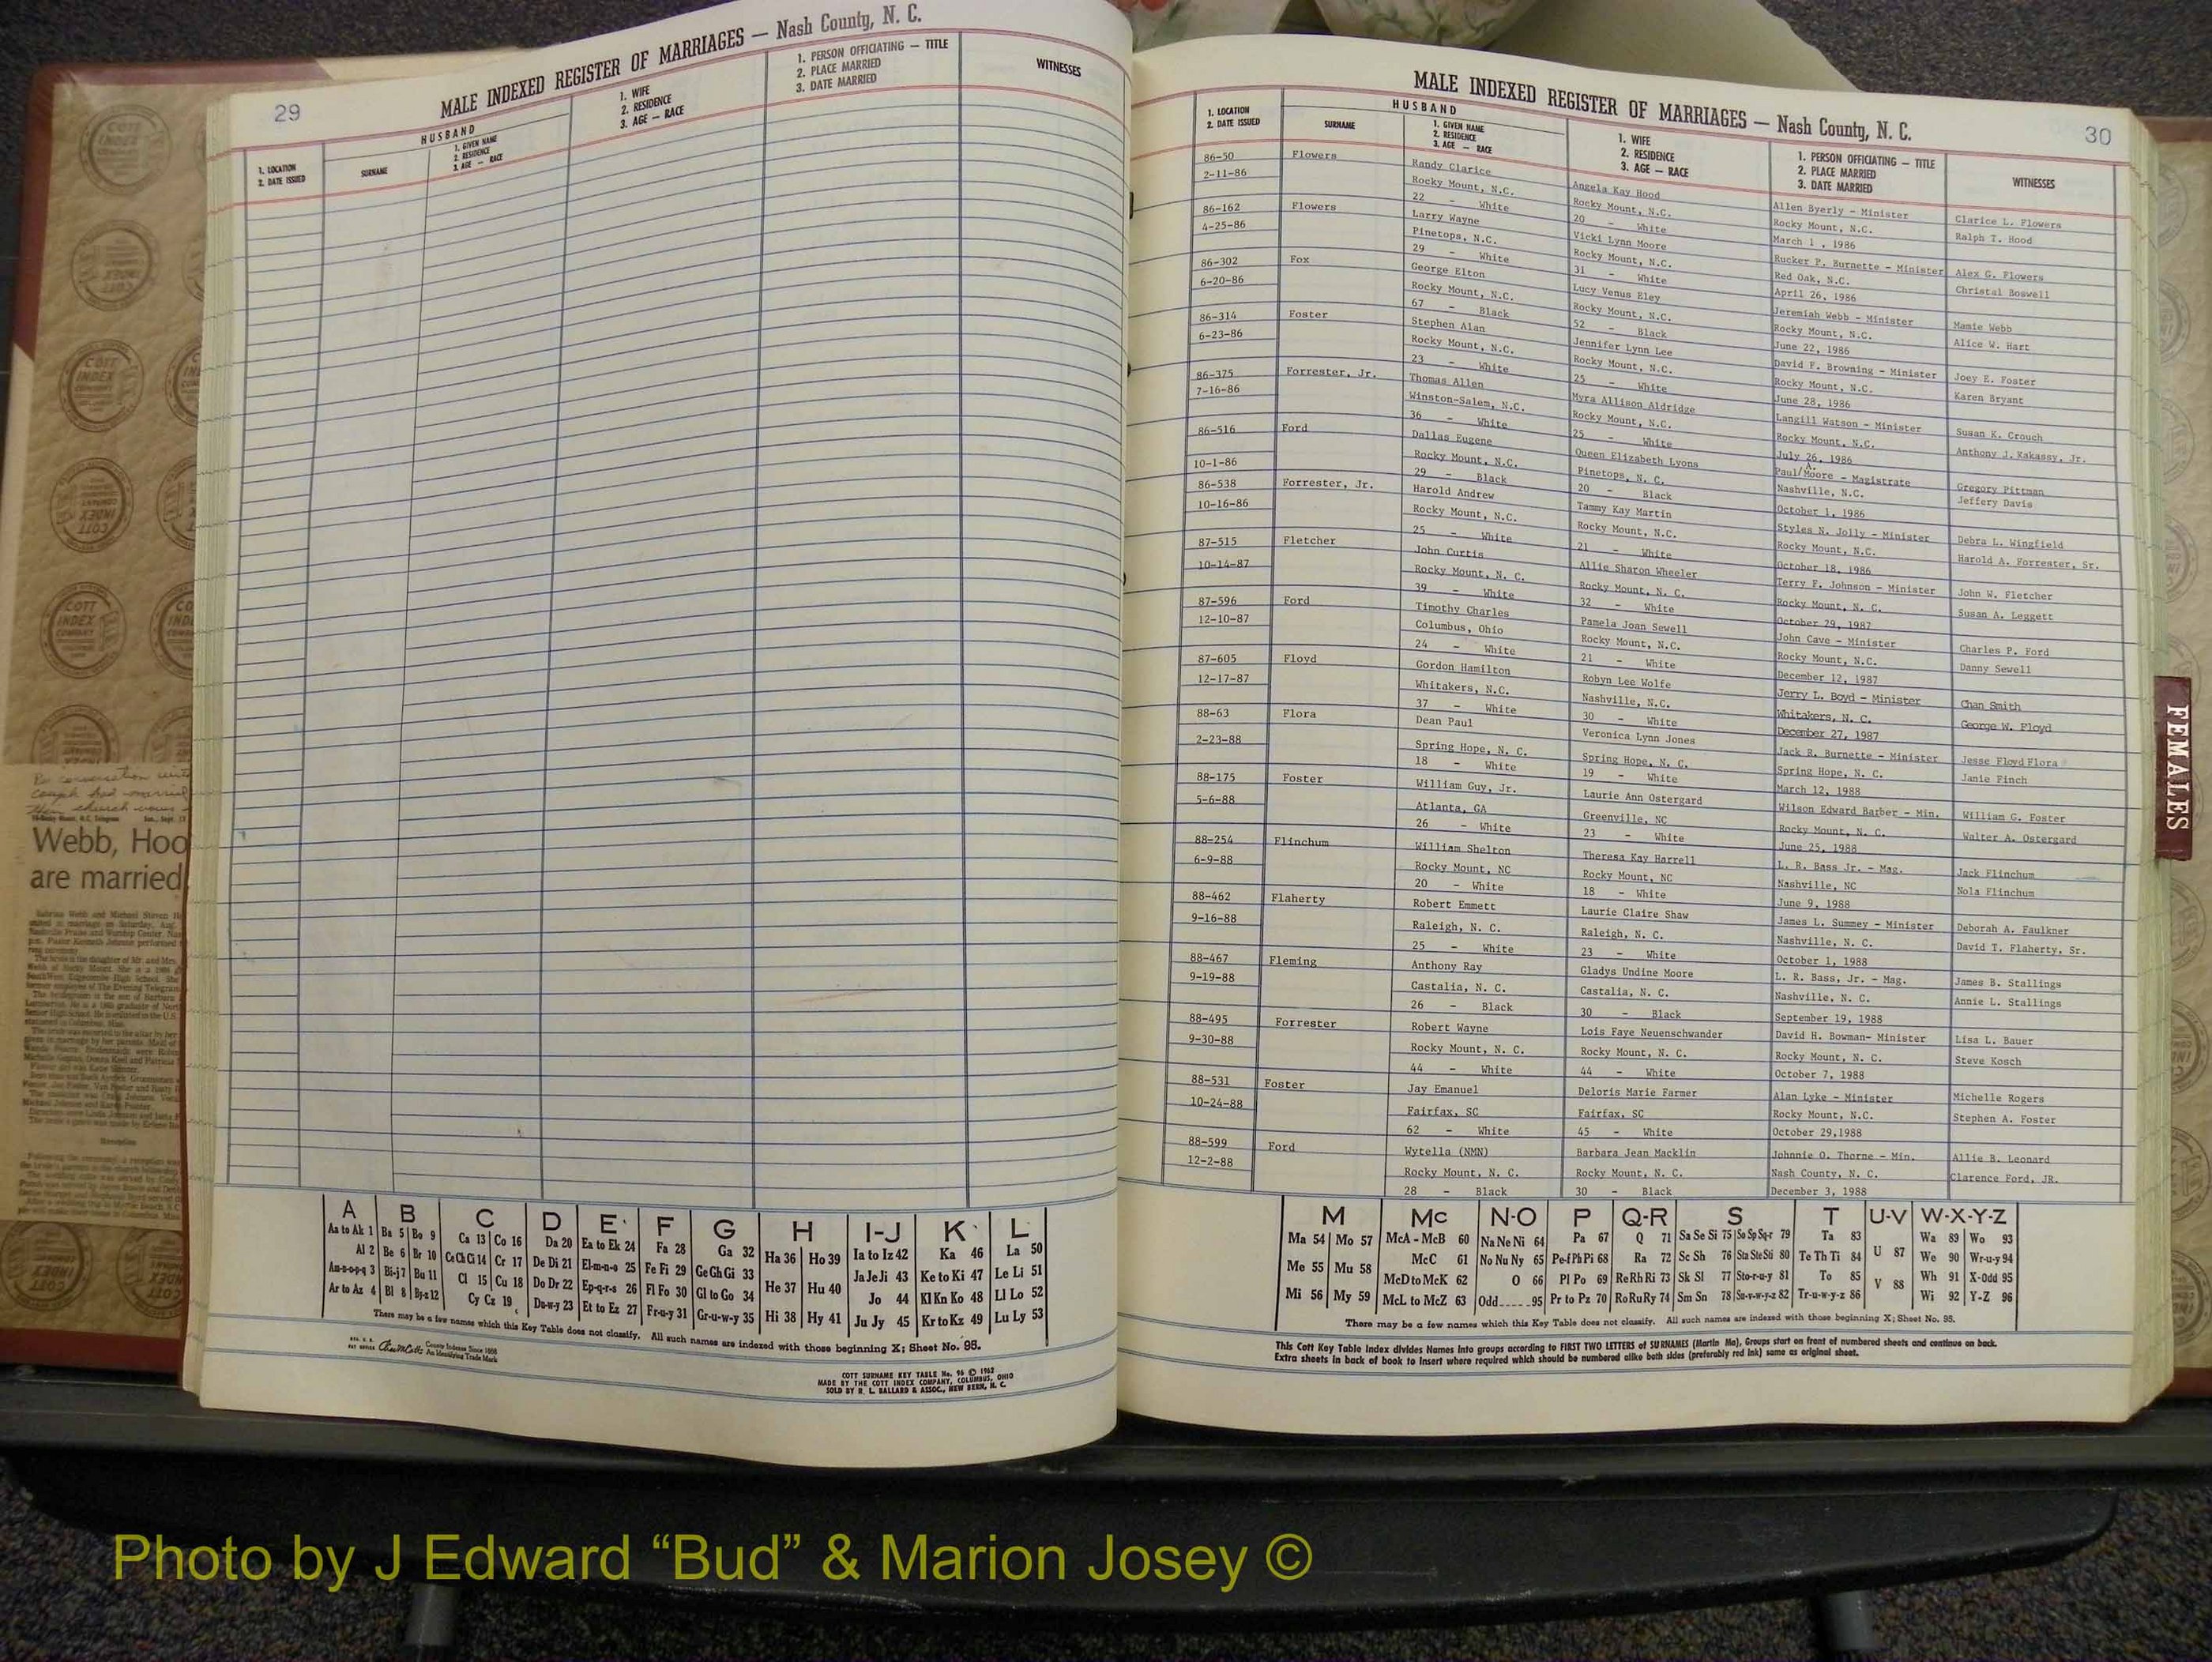 29
MALE INDEXED REGISTER OF MARRIAGES — Nash County, N. C.
1. LOCATION
2. DATE ISSUED
HUSBAND
SURNAME
1. GIVEN NAME
2. RESIDENCE
3. AGE — RACE
1. WIFE
2. RESIDENCE
3. AGE — RACE
1. PERSON OFFICIATING — TITLE
2. PLACE MARRIED
3. DATE MARRIED
WITNESSES
Webb, Hoo
are married
A B C D E F G H I-J K L
Aa to Ak 1 Ba 5 Bo 9 Ca 13 Co 16 Da 20 Ea to Ek 24 Fa 28 Ga 32 Ha 36 Ho 39 Ia to Iz 42 Ka 46 La 50
Al 2 Be 6 Br 10 Ce Ch Ci 14 Cr 17 De Di 21 El-m-n-o 25 Fe Fi 29 Ge Gh Gi 33 He 37 Hu 40 Ja Je Ji 43 Ke to Ki 47 Le Li 51
Am-n-o-p-q 3 Bi-j 7 Bu 11 Cl 15 Cu 18 Do Dr 22 Ep-q-r-s 26 Fl Fo 30 Gl to Go 34 Hi 38 Hy 41 Jo 44 Kl Kn Ko 48 Ll Lo 52
Ar to Az 4 Bl 8 By-z 12 Cy Cz 19 Du-w-y 23 Et to Ez 27 Fr-u-y 31 Gr-u-w-y 35 Ju Jy 45 Kr to Kz 49 Lu Ly 53
There may be a few names which this Key Table does not classify. All such names are indexed with those beginning X; Sheet No. 95.
County Indexes Since 1888
An Identifying Trade Mark
COTT SURNAME KEY TABLE No. 96 © 1962
MADE BY THE COTT INDEX COMPANY, COLUMBUS, OHIO
SOLD BY R. L. BALLARD & ASSOC., NEW BERN, N. C.
MALE INDEXED REGISTER OF MARRIAGES — Nash County, N. C.
30
1. LOCATION
2. DATE ISSUED
HUSBAND
SURNAME
1. GIVEN NAME
2. RESIDENCE
3. AGE — RACE
1. WIFE
2. RESIDENCE
3. AGE — RACE
1. PERSON OFFICIATING — TITLE
2. PLACE MARRIED
3. DATE MARRIED
WITNESSES
86-50 Flowers Randy Clarice Angela Kay Hood Allen Byerly - Minister Clarice L. Flowers
2-11-86 Rocky Mount, N.C. Rocky Mount, N.C. Rocky Mount, N.C. Ralph T. Hood
22 - White 20 - White March 1 , 1986
86-162 Flowers Larry Wayne Vicki Lynn Moore Rucker P. Burnette - Minister Alex G. Flowers
4-25-86 Pinetops, N.C. Rocky Mount, N.C. Red Oak, N.C. Christal Boswell
29 - White 31 - White April 26, 1986
86-302 Fox George Elton Lucy Venus Eley Jeremiah Webb - Minister Mamie Webb
6-20-86 Rocky Mount, N.C. Rocky Mount, N.C. Rocky Mount, N.C. Alice W. Hart
67 - Black 52 - Black June 22, 1986
86-314 Foster Stephen Alan Jennifer Lynn Lee David F. Browning - Minister Joey E. Foster
6-23-86 Rocky Mount, N.C. Rocky Mount, N.C. Rocky Mount, N.C. Karen Bryant
23 - White 25 - White June 28, 1986
86-375 Forrester, Jr. Thomas Allen Myra Allison Aldridge Langill Watson - Minister Susan K. Crouch
7-16-86 Winston-Salem, N.C. Rocky Mount, N.C. Rocky Mount, N.C. Anthony J. Kakassy, Jr.
36 - White 25 - White July 26, 1986
86-516 Ford Dallas Eugene Queen Elizabeth Lyons Paul/A. Moore - Magistrate Gregory Pittman
10-1-86 Rocky Mount, N.C. Pinetops, N. C. Nashville, N.C. Jeffery Davis
29 - Black 20 - Black October 1, 1986
86-538 Forrester, Jr. Harold Andrew Tammy Kay Martin Styles N. Jolly - Minister Debra L. Wingfield
10-16-86 Rocky Mount, N.C. Rocky Mount, N.C. Rocky Mount, N.C. Harold A. Forrester, Sr.
25 - White 21 - White October 18, 1986
87-515 Fletcher John Curtis Allie Sharon Wheeler Terry F. Johnson - Minister John W. Fletcher
10-14-87 Rocky Mount, N. C. Rocky Mount, N. C. Rocky Mount, N. C. Susan A. Leggett
39 - White 32 - White October 29, 1987
87-596 Ford Timothy Charles Pamela Joan Sewell John Cave - Minister Charles P. Ford
12-10-87 Columbus, Ohio Rocky Mount, N.C. Rocky Mount, N.C. Danny Sewell
24 - White 21 - White December 12, 1987
87-605 Floyd Gordon Hamilton Robyn Lee Wolfe Jerry L. Boyd - Minister Chan Smith
12-17-87 Whitakers, N.C. Nashville, N.C. Whitakers, N. C. George W. Floyd
37 - White 30 - White December 27, 1987
88-63 Flora Dean Paul Veronica Lynn Jones Jack R. Burnette - Minister Jesse Floyd Flora
2-23-88 Spring Hope, N. C. Spring Hope, N. C. Spring Hope, N. C. Janie Finch
18 - White 19 - White March 12, 1988
88-175 Foster William Guy, Jr. Laurie Ann Ostergard Wilson Edward Barber - Min. William G. Foster
5-6-88 Atlanta, GA Greenville, NC Rocky Mount, N. C. Walter A. Ostergard
26 - White 23 - White June 25, 1988
88-254 Flinchum William Shelton Theresa Kay Harrell L. R. Bass Jr. - Mag. Jack Flinchum
6-9-88 Rocky Mount, NC Rocky Mount, NC Nashville, NC Nola Flinchum
20 - White 18 - White June 9, 1988
88-462 Flaherty Robert Emmett Laurie Claire Shaw James L. Summey - Minister Deborah A. Faulkner
9-16-88 Raleigh, N. C. Raleigh, N. C. Nashville, N. C. David T. Flaherty, Sr.
25 - White 23 - White October 1, 1988
88-467 Fleming Anthony Ray Gladys Undine Moore L. R. Bass, Jr. - Mag. James B. Stallings
9-19-88 Castalia, N. C. Castalia, N. C. Nashville, N. C. Annie L. Stallings
26 - Black 30 - Black September 19, 1988
88-495 Forrester Robert Wayne Lois Faye Neuenschwander David H. Bowman- Minister Lisa L. Bauer
9-30-88 Rocky Mount, N. C. Rocky Mount, N. C. Rocky Mount, N. C. Steve Kosch
44 - White 44 - White October 7, 1988
88-531 Foster Jay Emanuel Deloris Marie Farmer Alan Lyke - Minister Michelle Rogers
10-24-88 Fairfax, SC Fairfax, SC Rocky Mount, N.C. Stephen A. Foster
62 - White 45 - White October 29,1988
88-599 Ford Wytella (NMN) Barbara Jean Macklin Johnnie O. Thorne - Min. Allie B. Leonard
12-2-88 Rocky Mount, N. C. Rocky Mount, N. C. Nash County, N. C. Clarence Ford, JR.
28 - Black 30 - Black December 3, 1988
M Mc N-O P Q-R S T U-V W-X-Y-Z
Ma 54 Mo 57 McA - McB 60 Na Ne Ni 64 Pa 67 Q 71 Sa Se Si 75 So Sp Sq-r 79 Ta 83 U 87 Wa 89 Wo 93
Me 55 Mu 58 McC 61 No Nu Ny 65 Pe-f Ph Pi 68 Ra 72 Sc Sh 76 Sta Ste Sti 80 Te Th Ti 84 V 88 We 90 Wr-u-y 94
Mi 56 My 59 McD to McK 62 O 66 Pl Po 69 Re Rh Ri 73 Sk Sl 77 Sto-r-u-y 81 To 85 Wh 91 X-Odd 95
McL to McZ 63 Odd.....95 Pr to Pz 70 Ro Ru Ry 74 Sm Sn 78 Su-v-w-y-z 82 Tr-u-w-y-z 86 Wi 92 Y-Z 96
There may be a few names which this Key Table does not classify. All such names are indexed with those beginning X; Sheet No. 95.
This Cott Key Table Index divides Names into groups according to FIRST TWO LETTERS of SURNAMES (Martin Ma), Groups start on front of numbered sheets and continue on back.
Extra sheets in back of book to insert where required which should be numbered alike both sides (preferably red ink) same as original sheet.
FEMALES
Photo by J Edward “Bud” & Marion Josey ©